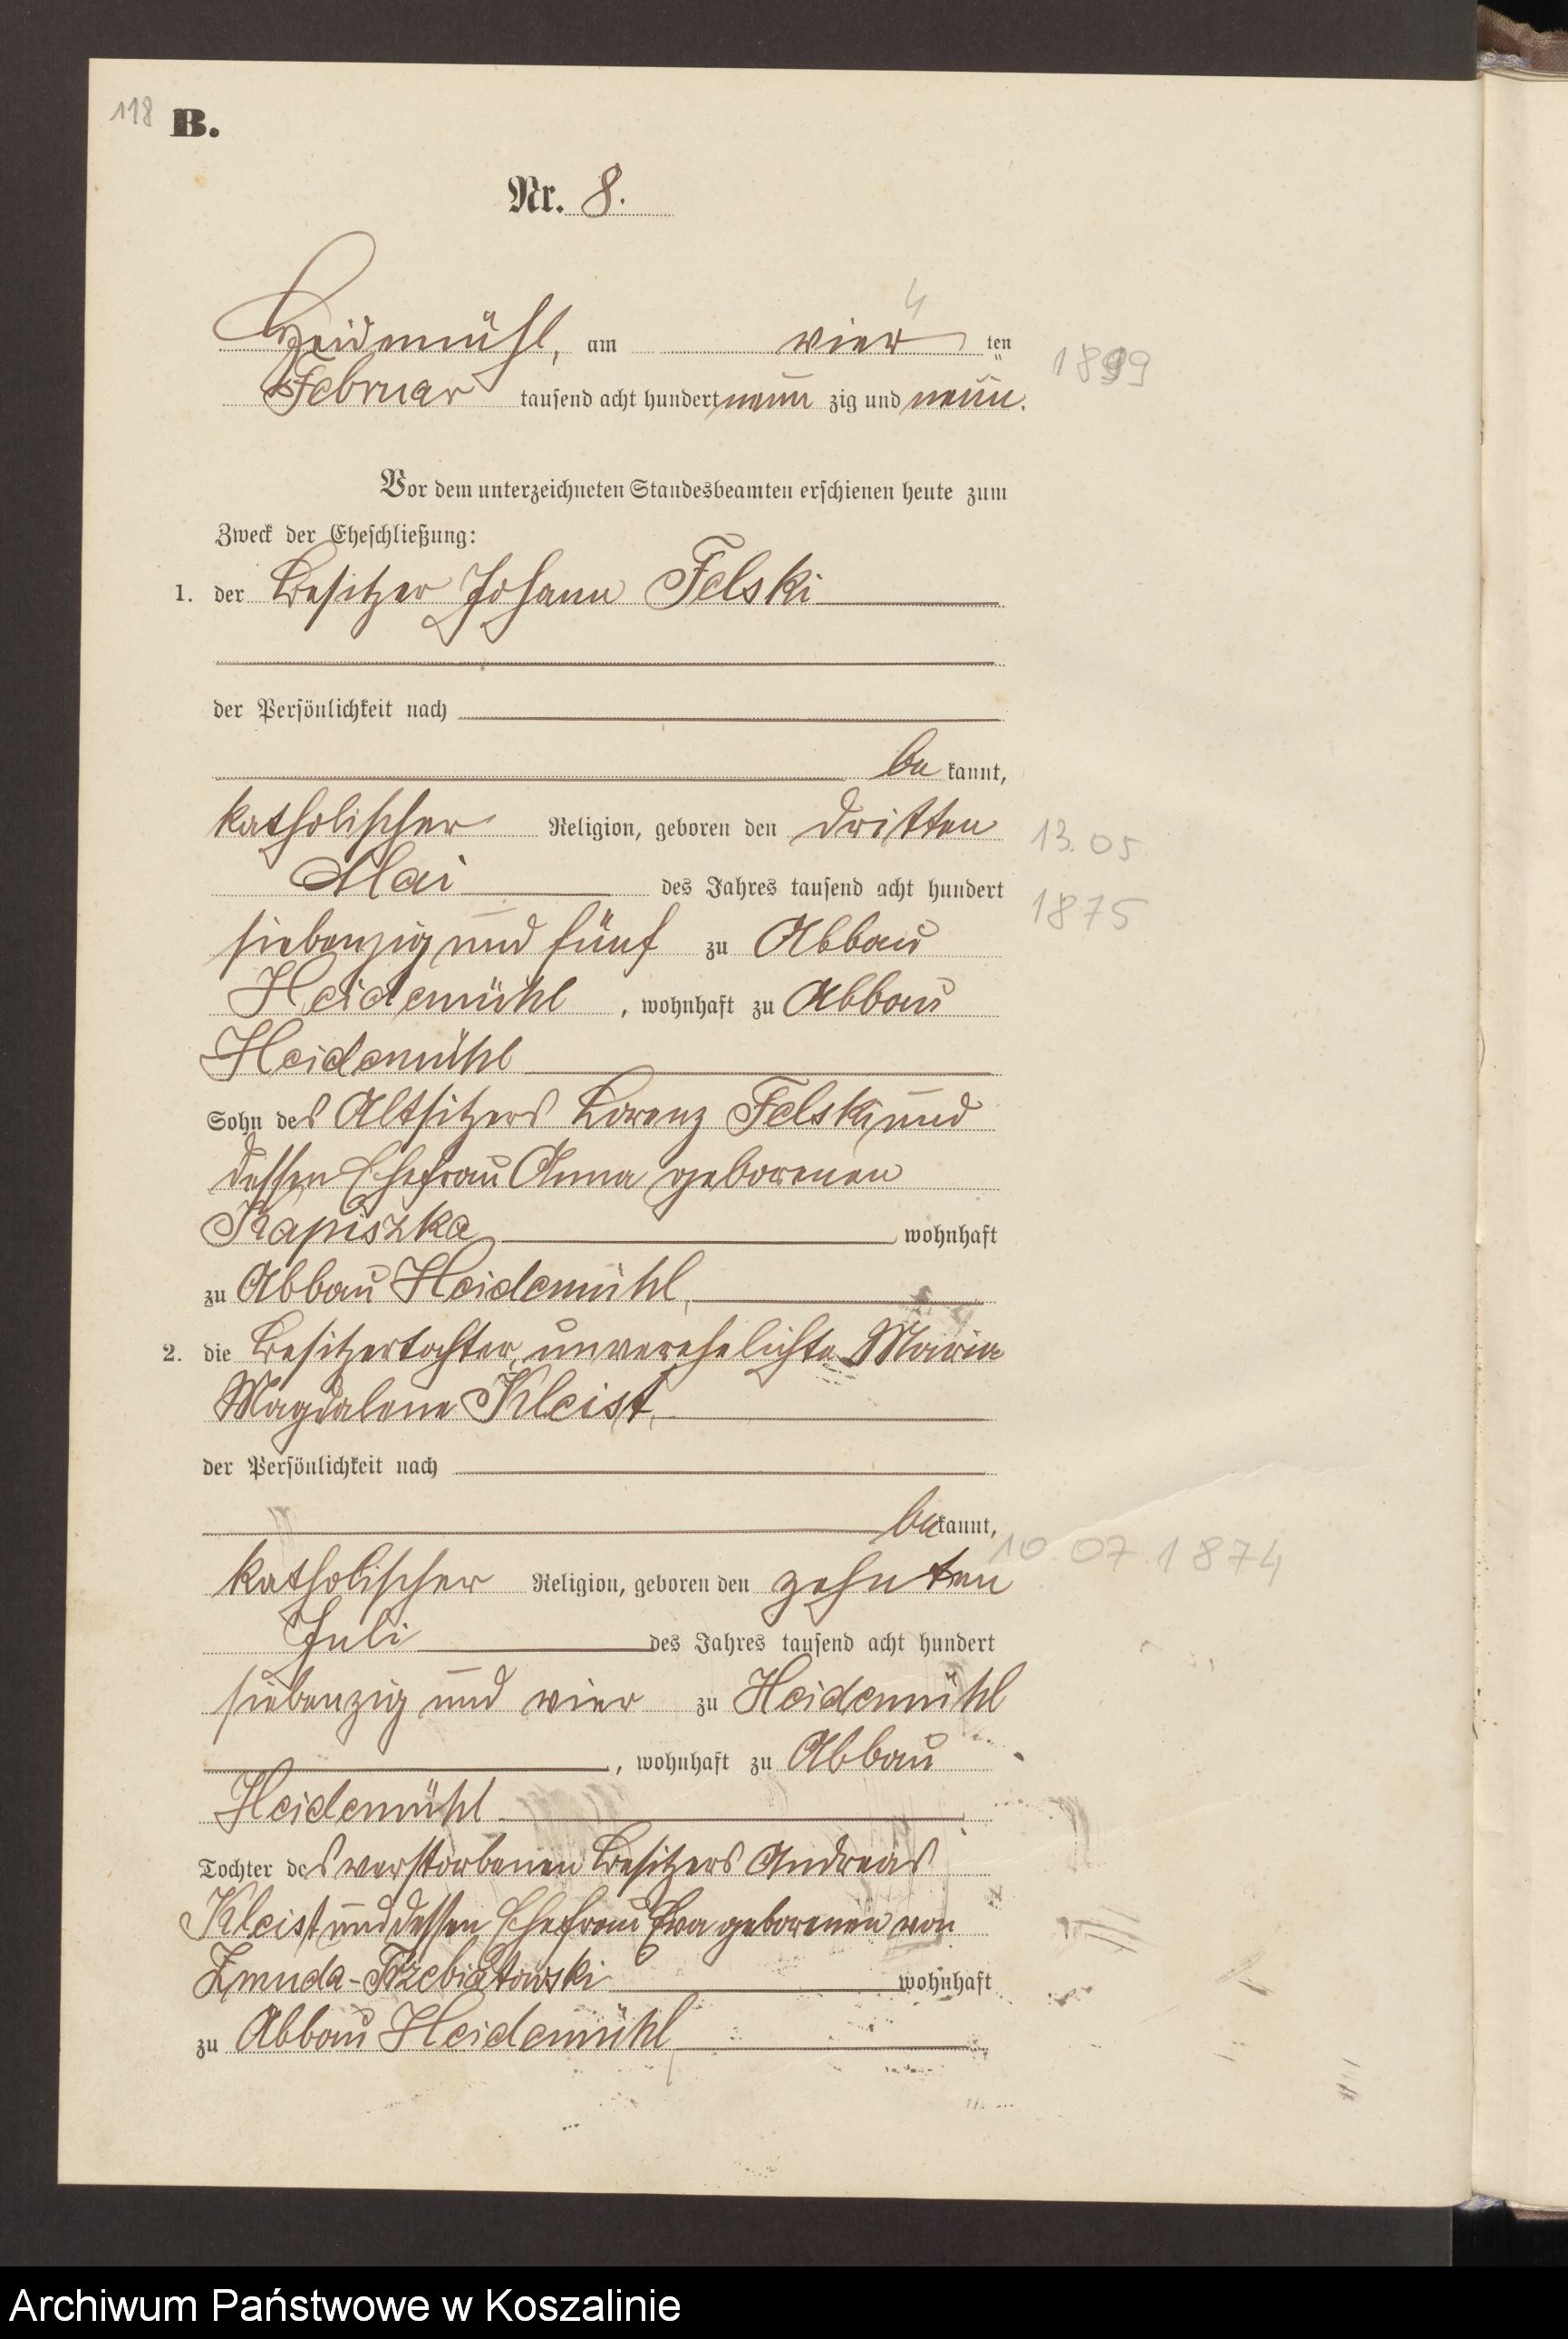 118 B.
Nr. 8.
4
Heidemühl, am vier ten
1899
Februar tausend acht hundert neun zig und neun.
Vor dem unterzeichneten Standesbeamten erschienen heute zum
Zweck der Eheschließung:
1. der Besitzer Johann Felski
der Persönlichkeit nach
be kannt,
katholischer Religion, geboren den dritten
13.05
Mai des Jahres tausend acht hundert
1875
siebenzig und fünf zu Abbau
Heidemühl, wohnhaft zu Abbau
Heidemühl
Sohn des Altsitzers Lorenz Felski und
dessen Ehefrau Anna geborenen
Kapiszka wohnhaft
zu Abbau Heidemühl,
2. die Besitzertochter, unverehelichte Maria
Magdalena Kleist,
der Persönlichkeit nach
bekannt,
10.07 1874
katholischer Religion, geboren den zehnten
Juli des Jahres tausend acht hundert
siebenzig und vier zu Heidemühl
, wohnhaft zu Abbau
Heidemühl
Tochter des verstorbenen Besitzers Andreas
Kleist und dessen Ehefrau Eva geborenen von
Zmuda-Trzebiatowski wohnhaft
zu Abbau Heidemühl,
Archiwum Państwowe w Koszalinie